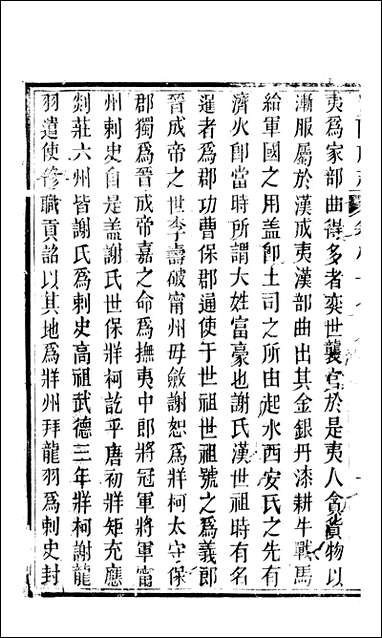 夷爲家部曲得多者奕世襲官於是夷人貪貨物以
漸服屬於漢成夷漢部曲出其金銀丹漆耕牛戰馬
給軍國之用盖卽土司之所由起水西安氏之先有
濟火卽當時所謂大姓富豪也謝氏漢世祖時有名
暹者爲郡功曹保郡通使于世祖世祖號之爲義郎
晉成帝之世李壽破甯州毋斂謝恕爲牂柯太守保
郡獨爲晉成帝嘉之命爲撫夷中郎將冠軍將軍甯
州刺史自是盖謝氏世保牂柯訖平唐初牂矩充應
剡莊六州皆謝氏爲刺史高祖武德三年牂柯謝龍
羽遣使修職貢詔以其地爲牂州拜龍羽爲刺史封